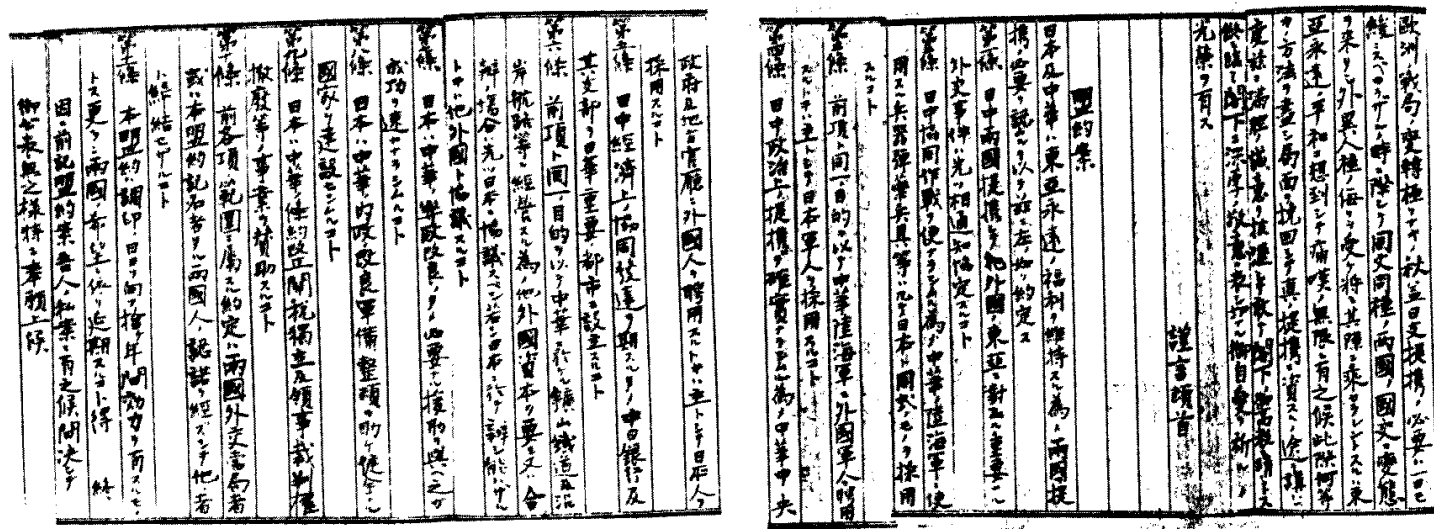 欧洲ノ戦局ノ変転極リナキ秋益日支提携ノ必要ハ一日モ
緩ニスベカラザルノ時ニ際シ同文同種ノ両国ノ国交ノ変態
ヲ来タシ外異人種ノ侮ヲ受ケ将ニ其隙ニ乗ゼラレントス
亜永遠ノ平和ニ想到シテ痛嘆ノ無限ニ有之候此際何等
カノ方法ヲ尽シ局面ヲ挽回シテ真ノ提携ニ資スルノ途ヲ講ジ
光栄ヲ有ス
謹言頓首
盟約案
日本及中華ハ東亜永遠ノ福利ヲ維持スル為メ両国提
携ノ必要ヲ認ムルヲ以テ茲ニ左ノ如ク約定ス
第一條 日中両国提携シ其他外国ノ東亜ニ対スル重要ナル
外交事件ハ先ツ相通知協定スルコト
第二條 日中協同作戦ヲ便ナラシムル為メ中華ノ陸海軍ニ使
用スル兵器弾薬兵具等ハ凡テ日本ト同式ノモノヲ採用
スルコト
第三條 前項ト同一ノ目的ヲ以テ中華陸海軍ニ外国軍人ヲ聘用
スルトキハ主トシテ日本軍人ヲ採用スルコト
第四條 日中政治上ノ提携ヲ確実ナラシムル為メ中華中央
政府及地方官庁ニ外国人ヲ聘用スルトキハ主トシテ日本人ヲ
採用スルコト
第五條 日中経済上ノ協同発達ヲ期スルタメ中日銀行及
其支部ヲ日華ノ重要ノ都市ニ設立スルコト
第六條 前項ト同一ノ目的ヲ以テ中華ニ於ケル鉱山鉄道及沿
岸航路等ノ経営スル為ノ他外国資本ヲ要シ又ハ合
弁ノ場合先ツ日本ニ協議スベシ若シ日本ニ於テ弁シ能ハザル
トキハ他外国ト協議スルコト
第七條 日本ハ中華ノ弊政改良ノタメ必要ナル援助ヲ與ヘ之ガ
成功ヲ速カナラシムルコト
第八條 日本ハ中華ノ内政ノ改良軍備整頓ヲ助ケ健全ナル
国家ヲ建設セシムルコト
第九條 日本ハ中華ノ條約改正関税独立及領事裁判権
撤廃等ノ事業ヲ賛助スルコト
第十條 前各項ノ範囲ニ属スル約定ハ両国外交当局者
或ハ本盟約記名者ヨリ両国人ノ認諾ヲ経ズシテ他者
ト締結セザルコト
第十一條 本盟約ハ調印ノ日ヨリ向フ拾ケ年間効力ヲ有スルモノ
トス更ラニ両国ノ希望ニ依リ延期スルコトヲ得 終
因ニ前記盟約案ハ吾人ノ私案ニ有之候間決シテ
御公表無之様特ニ奉願上候